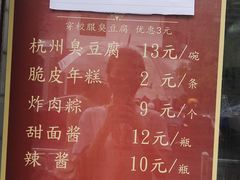 穿校服臭豆腐 优惠3元
杭州臭豆腐 13元/碗
脆皮年糕 2元/条
炸肉粽 9元/个
甜面酱 12元/瓶
辣酱 10元/瓶